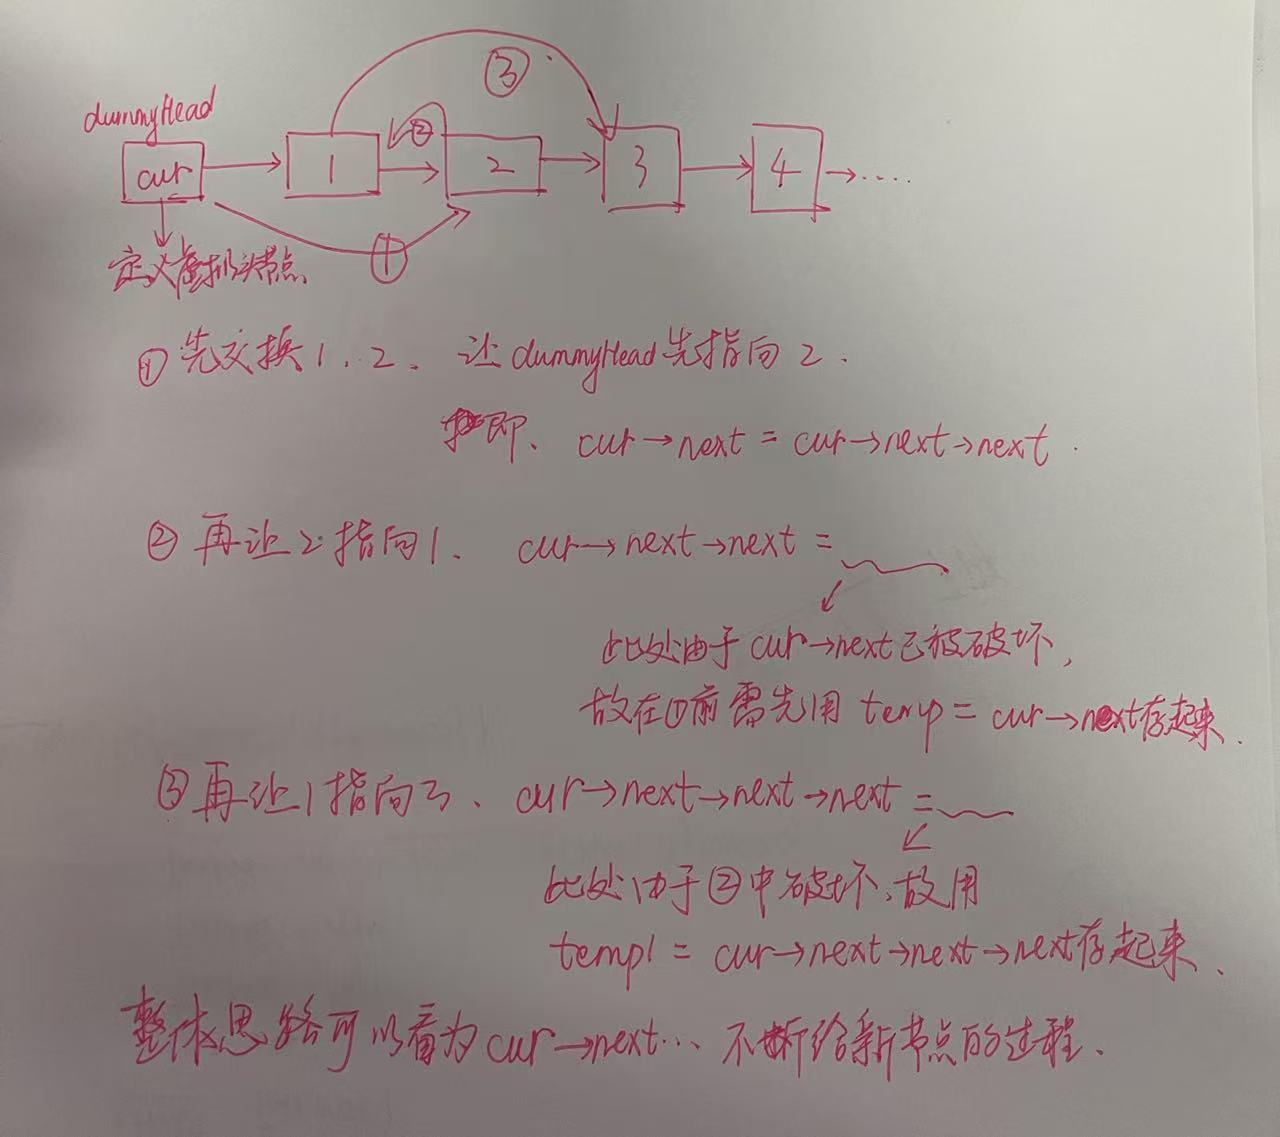 dummyHead
③
②
cur → 1 → 2 → 3 → 4 → ....
①
定义虚拟头节点
① 先交换1、2、让dummyHead先指向2.
即、cur→next = cur→next→next.
② 再让2指向1. cur→next→next =
此处由于cur→next已被破坏,
故在①前需先用 temp = cur→next存起来.
③ 再让1指向3、cur→next→next→next =
此处由于②中破坏、故用
temp1 = cur→next→next→next存起来、
整体思路可以看为cur→next... 不断给新节点的过程.